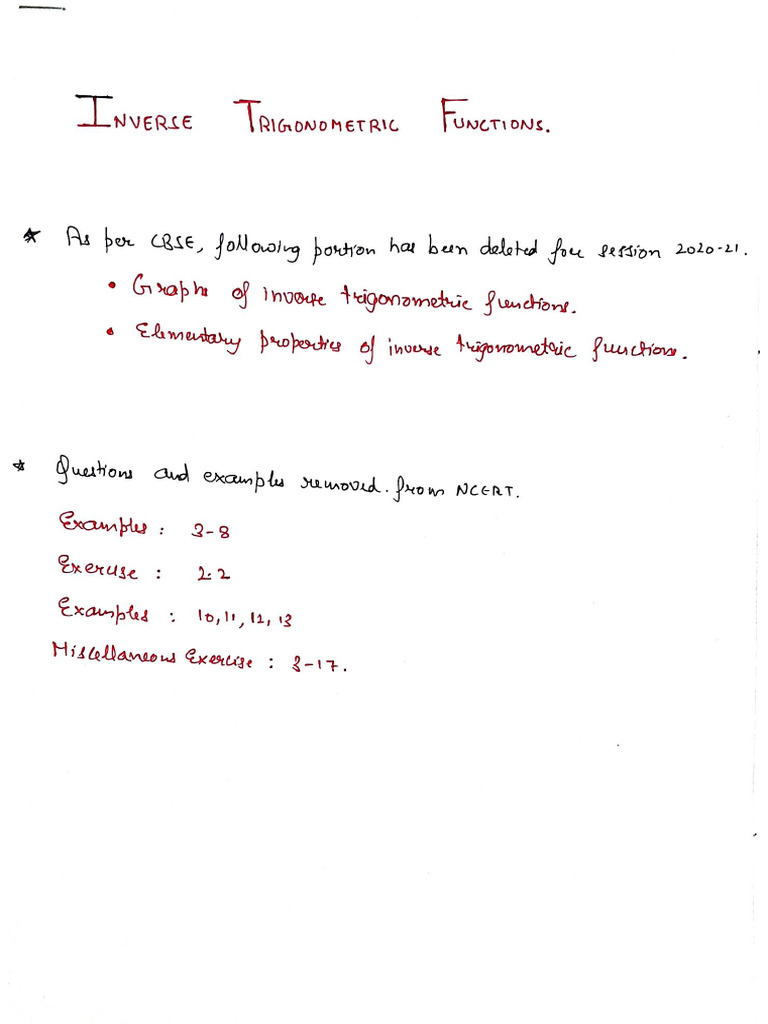 INVERSE TRIGONOMETRIC FUNCTIONS.
* As per CBSE, following portion has been deleted for session 2020-21.
• Graphs of inverse trigonometric functions.
• Elementary properties of inverse trigonometric functions.
* Questions and examples removed from NCERT.
Examples : 3-8
Exercise : 2.2
Examples : 10, 11, 12, 13
Miscellaneous Exercise : 3-17.